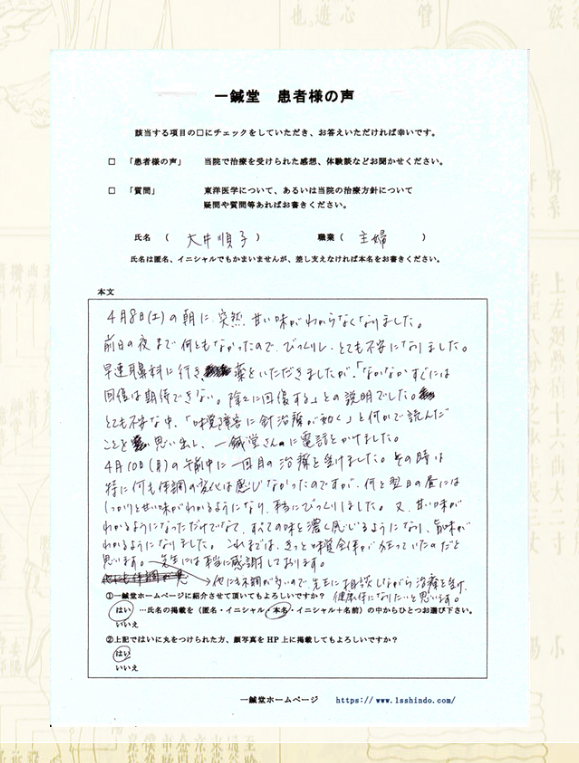 一鍼堂　患者様の声
該当する項目の□にチェックをしていただき、お答えいただければ幸いです。
□　「患者様の声」　当院で治療を受けられた感想、体験談などお聞かせください。
□　「質問」　東洋医学について、あるいは当院の治療方針について
疑問や質問等あればお書きください。
氏名　（　大井順子　）　職業（　主婦　）
氏名は匿名、イニシャルでもかまいませんが、差し支えなければ本名をお書きください。
本文
4月8日(土)の朝に突然、甘い味がわからなくなりました。
前日の夜まで何ともなかったので、びっくりし、とても不安になりました。
早速耳鼻科に行き、薬をいただきましたが、「なかなかすぐには
回復は期待できない。除々に回復する」との説明でした。
とても不安な中、「味覚障害に針治療が効く」と何かで読んだ
ことを思い出し、一鍼堂さんに電話をかけました。
4月10日(月)の午前中に一回目の治療を受けました。その時は
特に何も体調の変化は感じなかったのですが、何と翌日の昼には
しっかりと甘い味がわかるようになり、本当にびっくりしました。又、甘い味が
わかるようになっただけでなく、すべての味を濃く感じるようになり、旨味が
わかるようになりました。これまでは、きっと味覚全体が狂っていたのだと
思います。先生には本当に感謝しております。
他にも不調が多いので先生に相談しながら治療を受け、
健康体になりたいと思います。
①一鍼堂ホームページに紹介させて頂いてもよろしいですか？
はい　…氏名の掲載を（匿名・イニシャル・本名・イニシャル＋名前）の中からひとつお選び下さい。
いいえ
②上記ではいに丸をつけられた方、顔写真をHP上に掲載してもよろしいですか？
はい
いいえ
一鍼堂ホームページ　https://www.1sshindo.com/